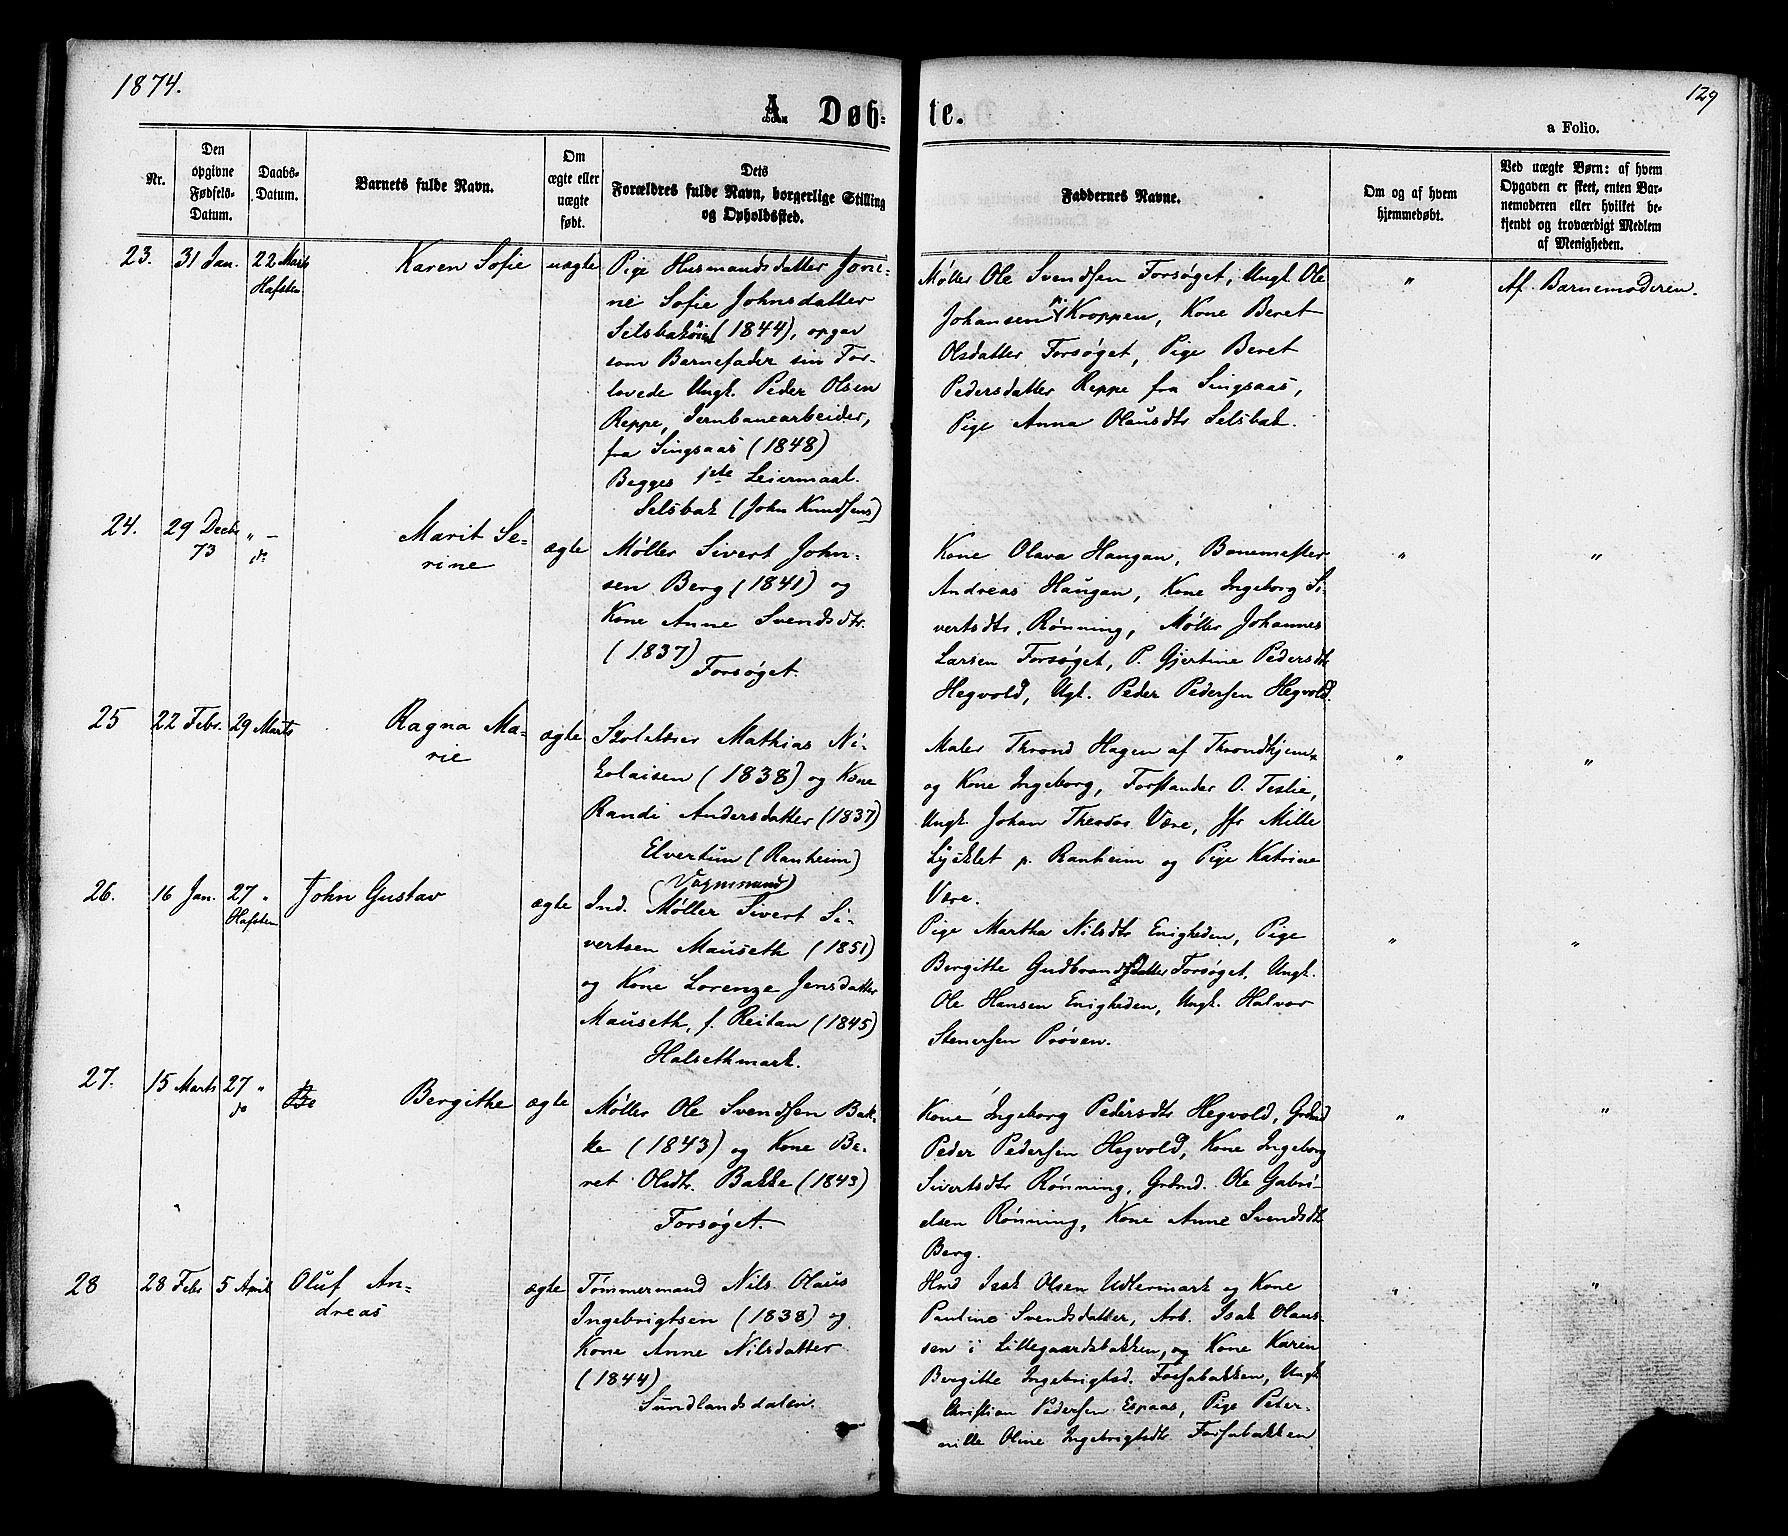 1874.
129
A. Døbte.
a Folio.
Nr.
Den opgivne Fødsels-Datum.
Daabs-Datum.
Barnets fulde Navn.
Om ægte eller uægte født.
Dets Forældres fulde Navn, borgerlige Stilling og Opholdssted.
Faddernes Navne.
Om og af hvem hjemmedøbt.
Ved uægte Børn: af hvem Opgaven er skeet, enten Barnemoderen eller hvilket bekjendt og troværdigt Medlem af Menigheden.
23.
31 Jan.
22 Marts
Hafsten
Karen Sofie
uægte
Pige Husmandsdatter Jon-
ne Sofie Johnsdatter
(1844), opgav
som Barnefader sin For-
lovede Ungk. Peder Olsen
Reppe, Jernbanearbeider,
fra Singsaas (1848)
Begges 1ste Leiermaal.
Selsbak (John Knudsens)
Møller Ole Svendsen Forsøget, Ungk. Ole
Johansen Kroppen, Kone Beret
Olsdatter Forsøget, Pige Beret
Pedersdatter Reppe fra Singsaas,
Pige Anna Olausdtr Selsbak.
"
Af Barnemoderen.
24.
29 Decbr
73
" –
do
Marit Se-
rine
ægte
Møller Sivert John-
sen Berg (1841) og
Kone Anne Svendsdtr.
(1837)
Forsøget.
Kone Olava Haugan, Banemester
Andreas Haugan, Kone Ingeborg Si-
vertsdtr. Rønning, Møller Johannes
Larsen Forsøget, P. Gjertine Pedersdtr
Hegvold, Ugk. Peder Pedersen Hegvold.
"
"
25
22 Febr.
29 Marts
Ragna Ma-
rie
ægte
Skolelærer Mathias Ni-
kolaisen (1838) og Kone
Randi Andersdatter (1837)
Elvertum (Ranheim)
Maler Thrond Hagen af Throndhjem
og Kone Ingeborg, Forstander O. Teslie,
Ungk. Johan Theodor Være, Jfr Mille
Lycklet p. Ranheim og Pige Katrine
Være.
"
"
26.
16 Jan.
27 "
Hafsten
John Gustav
ægte
(Vognmand)
Ind. Møller Sivert Si-
vertsen Mauseth (1851)
og Kone Lorenze Jensdatter
Mauseth, f. Reitan (1845)
Halsethmark.
Pige Martha Nilsdtr Enigheden, Pige
Bergitte Gudbrandsdatter Forsøget, Ungk.
Ole Hansen Enigheden, Ungk. Halvor
Stenersen Prøven.
"
"
27.
15 Marts
27 "
do
Be
Bergithe
ægte
Møller Ole Svendsen Bak-
ke (1843) og Kone Be-
ret Olsdtr. Bakke (1843)
Forsøget.
Kone Ingeborg Pedersdtr Hegvold, Grdmd
Peder Pedersen Hegvold, Kone Ingeborg
Sivertsdtr Rønning, Grdmd. Ole Gabri-
elsen Rønning, Kone Anne Svendsdtr
Berg.
"
"
28
28 Febr
5 April
Oluf An-
dreas
ægte
Tømmermand Nils Olaus
Ingebrigtsen (1838) og
Kone Anne Nilsdatter
(1844)
Sundlandsdalen.
Hmd Isak Olsen Udlermark og Kone
Pauline Svendsdatter, Arb. Isak Olaus-
sen i Lillegaardsbakken, og Kone Karen
Bergitte Ingebrigtsd. Forsabakken, Ungk
Christian Pedersen Espaas, Pige Peter-
nille Oline Ingebrigtsdtr Forsabakken
"
"